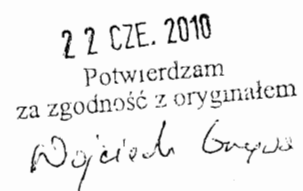 22 CZE. 2010
Potwierdzam
za zgodność z oryginałem
Wojciech